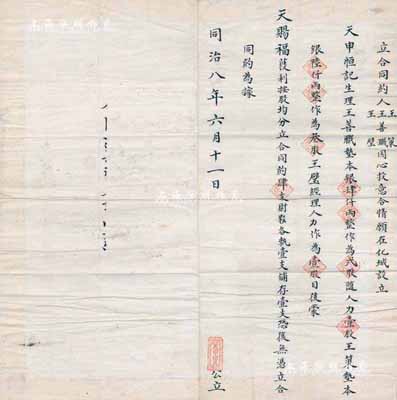 立合同約人王善職 王策 王璧 因心投意合情願在化城設立
天申恒記生理王善職墊本銀肆仟兩整作為弍股隨人力壹股王策墊本
銀陸仟兩整作為叁股王璧經理人力作為壹股日後蒙
天賜福獲利按股均分立合同約肆支財東各執壹支鋪存壹支恐後無憑立合
同約為據
同治八年六月十一日
公立